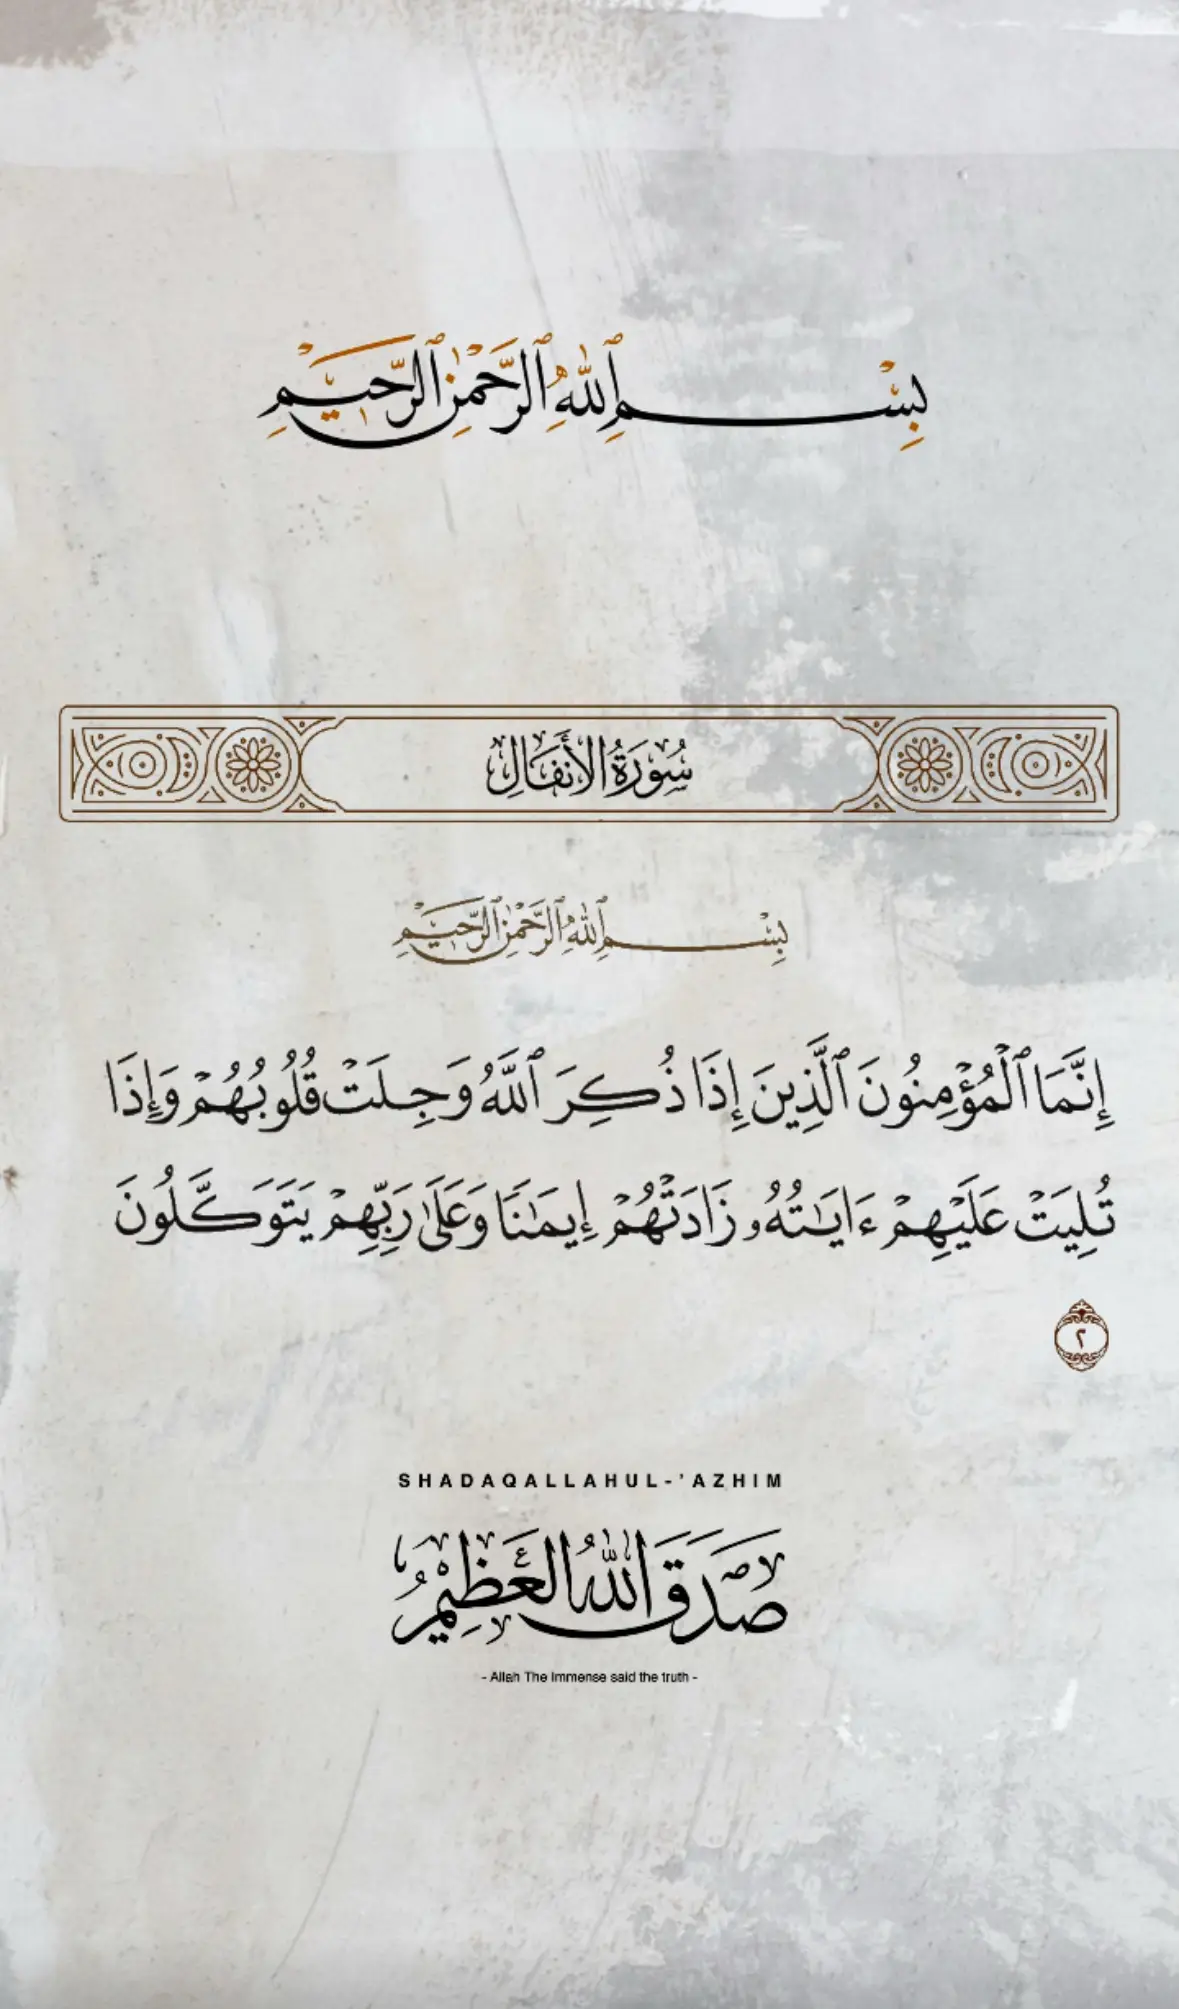 بِسْمِ ٱللَّهِ ٱلرَّحْمَٰنِ ٱلرَّحِيمِ
سُورَةُ الأَنفَالِ
بِسْمِ ٱللَّهِ ٱلرَّحْمَٰنِ ٱلرَّحِيمِ
إِنَّمَا ٱلْمُؤْمِنُونَ ٱلَّذِينَ إِذَا ذُكِرَ ٱللَّهُ وَجِلَتْ قُلُوبُهُمْ وَإِذَا
تُلِيَتْ عَلَيْهِمْ ءَايَٰتُهُۥ زَادَتْهُمْ إِيمَٰنًا وَعَلَىٰ رَبِّهِمْ يَتَوَكَّلُونَ
٢
SHADAQALLAHUL-'AZHIM
صَدَقَ اللّٰهُ الْعَظِيْمُ
- Allah The Immense said the truth -